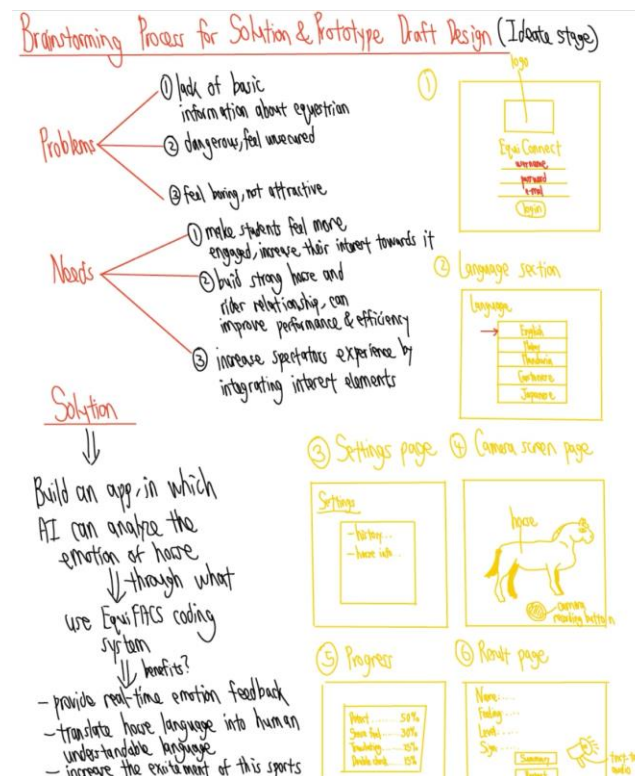 Brainstorming Process for Solution & Prototype Draft Design (Ideate stage)
Problems
① lack of basic
information about equestrian
② dangerous, feel unsecured
③ feel boring, not attractive
Needs
① make students feel more
engaged, increase their interest towards it
② build strong horse and
rider relationship, can
improve performance & efficiency
③ increase spectators experience by
integrating interest elements
Solution
Build an app, in which
AI can analyze the
emotion of horse
through what
use EquiFACS coding
system
benefits?
- provide real-time emotion feedback
- translate horse language into human
understandable language
- increase the excitement of this sports
①
logo
EquiConnect
username
password
e-mail
login
② Language section
Language
English
Malay
Mandarin
Cantonese
Japanese
③ Settings page
Settings
- history...
- horse info..
④ Camera screen page
horse
camera
button
⑤ Progress
Detect ...... 50%
30%
Translating ... 15%
Double check ... 15%
⑥ Result page
Name....
Feeling ....
Level....
Sign....
Summary
audio